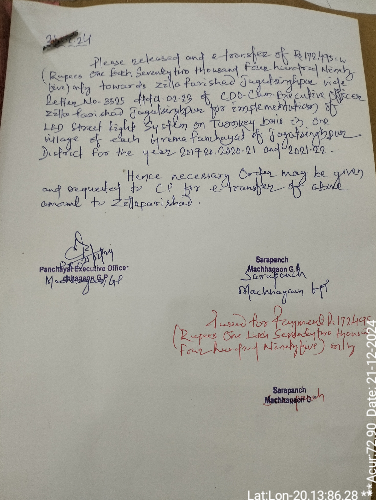 Please released and e-transfer of Rs.172495.00
(Rupees One Lakh Seventytwo thousand Four hundred Ninety
five) only towards Zilla Parishad Jagatsinghpur vide
Letter No-3595 of CDO-Cum-Executive Officer
Zilla Parishad Jagatsinghpur for implementation of
LED Street Light System on Turnkey basis in one
village of each Grama Panchayat of Jagatsinghpur
District for the year 2020-21 and 2021-22.
Hence necessary order may be given
and requested to for e-transfer of above
amount to Zillaparishad.
Panchayat Executive Officer
Machhagaon G.P
Machhagaon GP
Sarapanch
Machhagaon G.P
Sarapanch
Machhagaon GP
Passed for Payment Rs.172495
(Rupees One Lakh Seventytwo thousand
Four hundred Ninetyfive) only
Sarapanch
Machhagaon G.P
Lat:Lon-20.13:86.28 ***Acur:72.90 Date: 21-12-2024